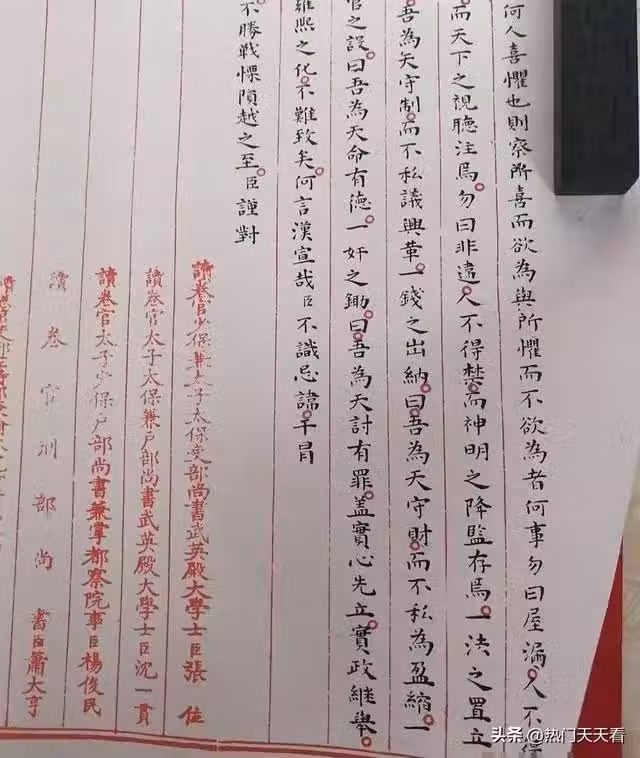 何人喜懼也則察所喜而欲為與所懼而不欲為者何事勿曰屋漏人不得
而天下之視聽注焉勿曰非違人不得禁而神明之降監存焉一法之置立
吾為天守制而不私議興革一錢之出納曰吾為天守財而不私為盈縮一
官之設曰吾為天命有德一奸之鋤曰吾為天討有罪蓋實心先立實政繼舉
雍熙之化不難致矣何言漢宣哉臣不識忌諱干冒
不勝戰慄隕越之至臣謹對
讀卷官少保兼太子太保吏部尚書武英殿大學士臣張位
讀卷官太子太保兼戶部尚書武英殿大學士臣沈一貫
讀卷官太子少保戶部尚書兼掌都察院事臣楊俊民
讀卷官刑部尚書臣蕭大亨
头条 @热门天天看